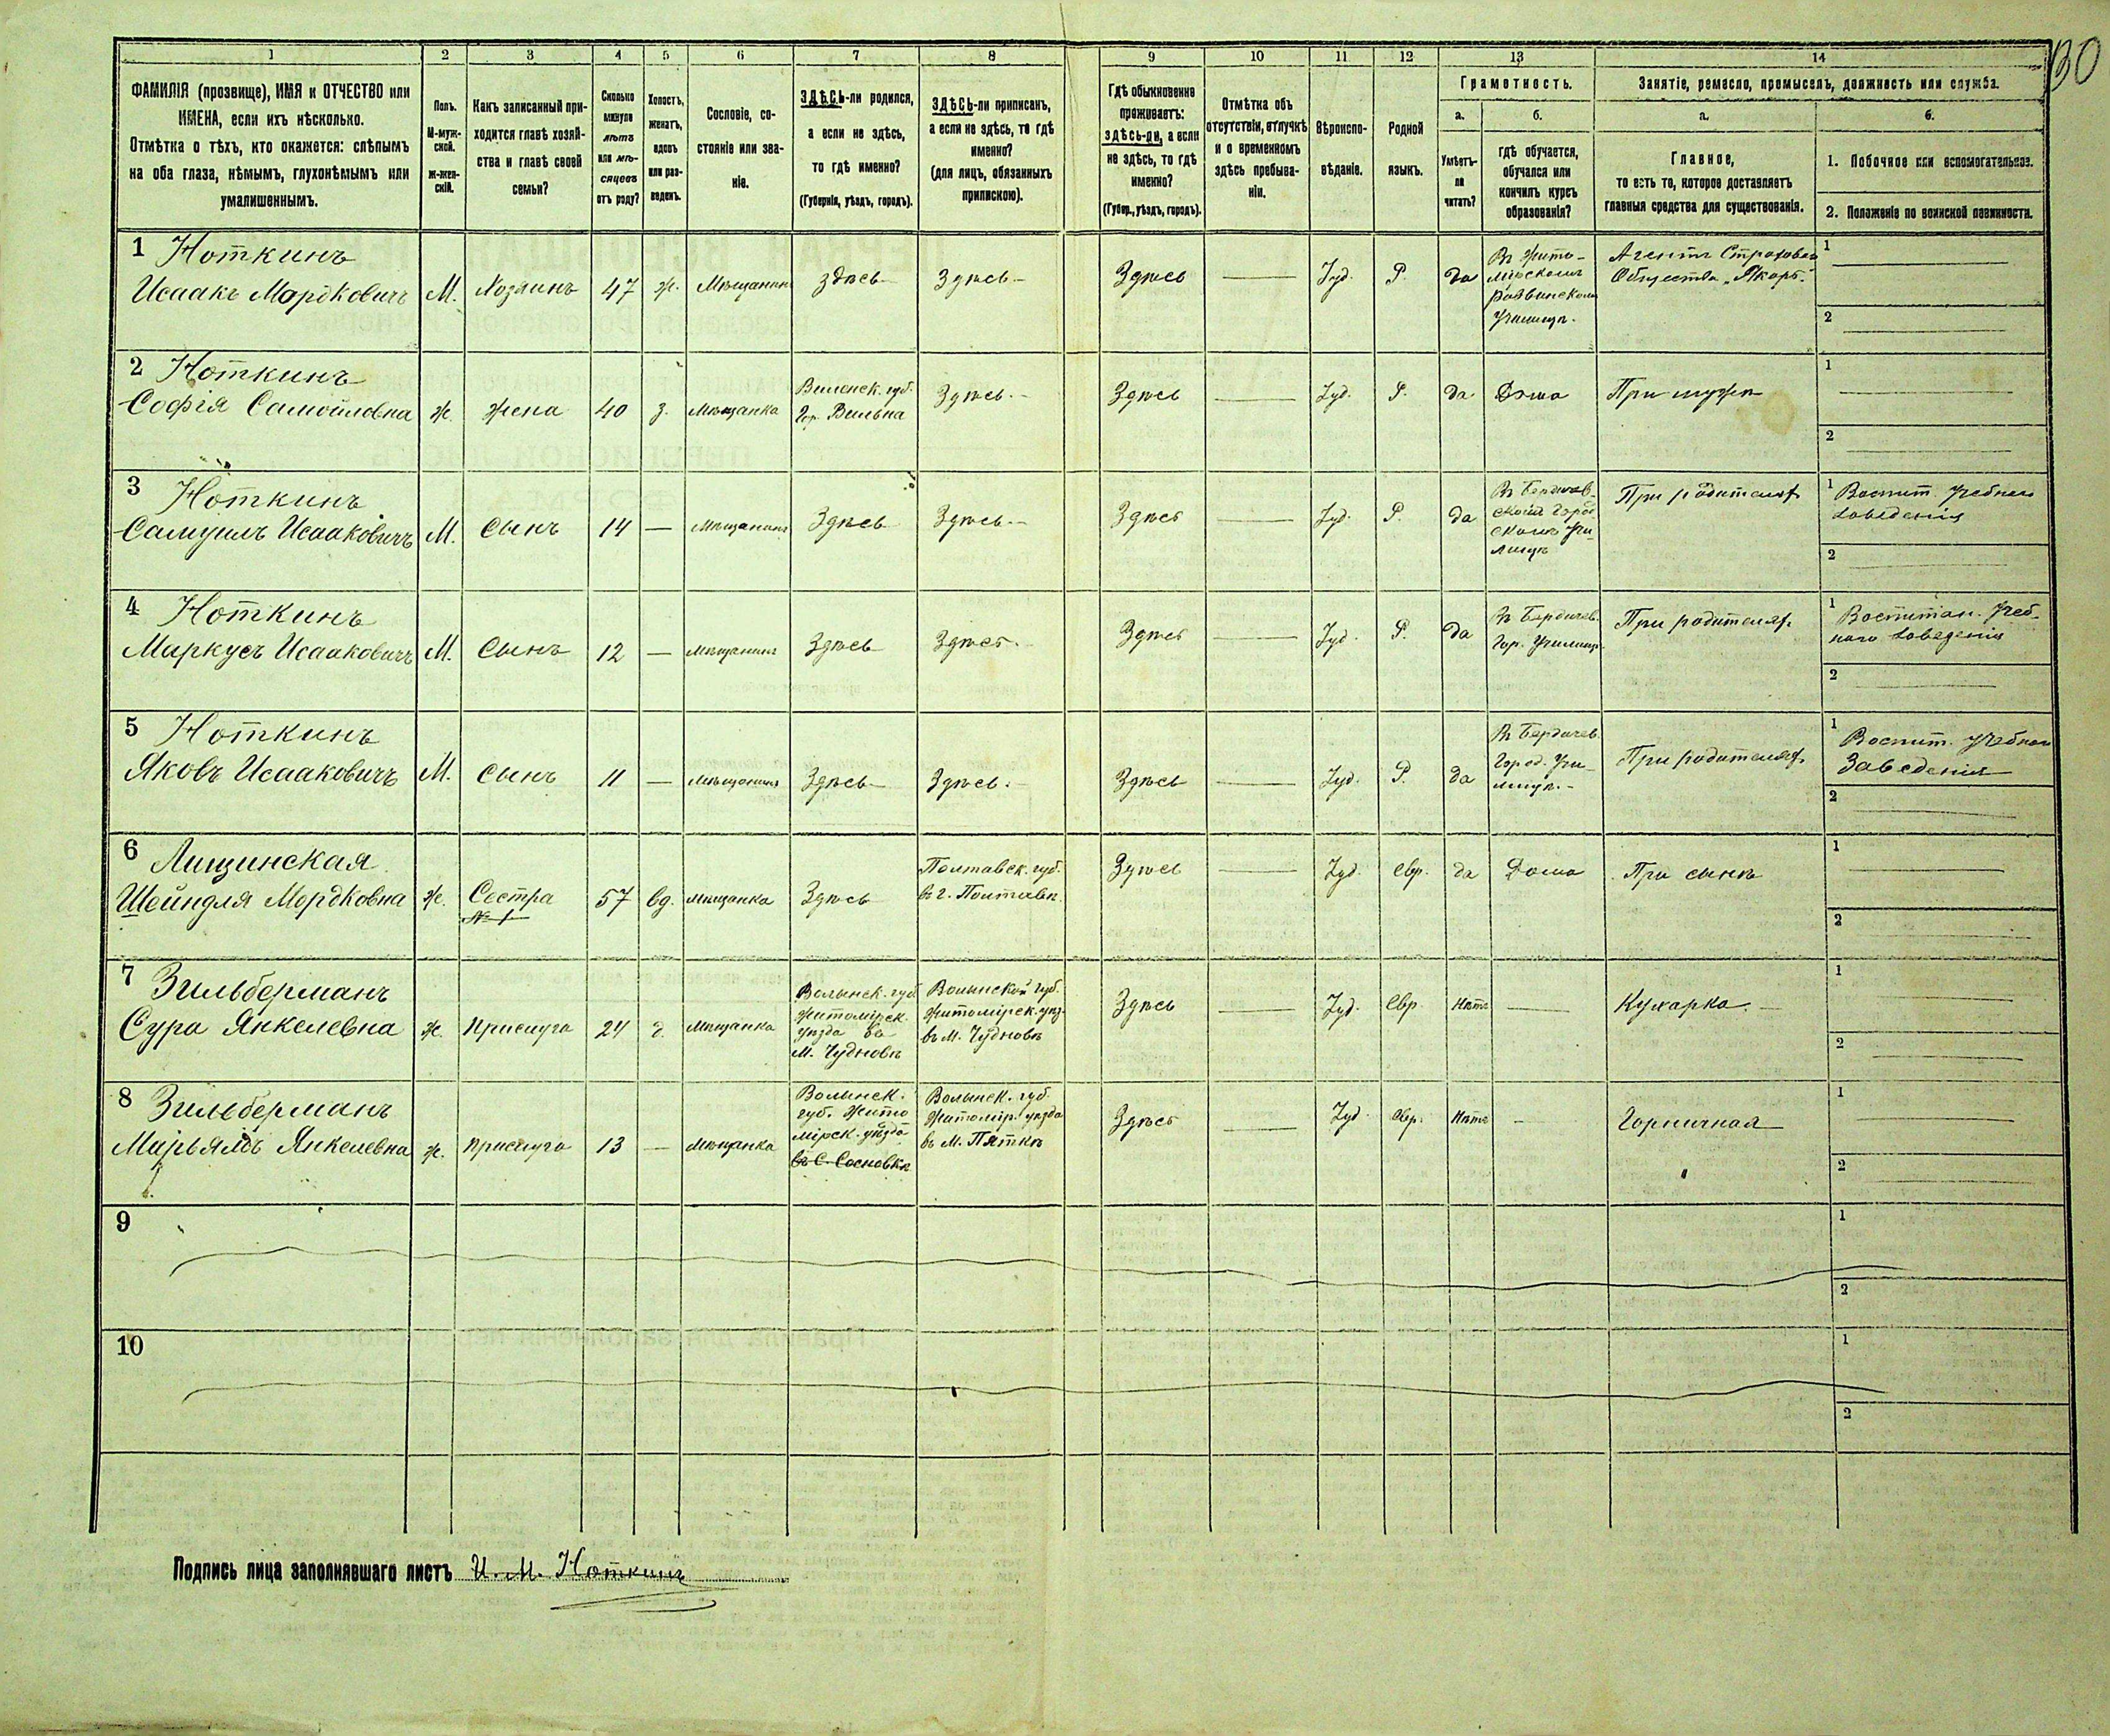 130
1 2 3 4 5 6 7 8 9 10 11 12 13 14
ФАМИЛІЯ (прозвище), ИМЯ и ОТЧЕСТВО или
ИМЕНА, если ихъ нѣсколько.
Отмѣтка о тѣхъ, кто окажется: слѣпымъ
на оба глаза, нѣмымъ, глухонѣмымъ или
умалишеннымъ.
Полъ.
М-муж-
ской.
ж-жен-
скій.
Какъ записанный при-
ходится главѣ хозяй-
ства и главѣ своей
семьи?
Сколько
минуло
лѣтъ
или мѣ-
сяцевъ
отъ роду?
Холостъ,
женатъ,
вдовъ
или раз-
веденъ.
Сословіе, со-
стояніе или зва-
ніе.
ЗДѢСЬ-ли родился,
а если не здѣсь,
то гдѣ именно?
(Губернія, уѣздъ, городъ).
ЗДѢСЬ-ли приписанъ,
а если не здѣсь, то гдѣ
именно?
(для лицъ, обязанныхъ
припискою).
Гдѣ обыкновенно
проживаетъ:
здѣсь-ли, а если
не здѣсь, то гдѣ
именно?
(Губер., уѣздъ, городъ).
Отмѣтка объ
отсутствіи, отлучкѣ
и о временномъ
здѣсь пребыва-
ніи.
Вѣроиспо-
вѣданіе.
Родной
языкъ.
Грамотность.
а.
Умѣетъ-
ли
читать?
б.
гдѣ обучается,
обучался или
кончилъ курсъ
образованія?
Занятіе, ремесло, промыселъ, должность или служба.
а.
Главное,
то есть то, которое доставляетъ
главныя средства для существованія.
б.
1. Побочное или вспомогательное.
2. Положеніе по воинской повинности.
1 Ноткинъ
Исаакъ Мордковичъ
М.
Хозяинъ
47
ж.
Мѣщанинъ
здѣсь
Здѣсь
Здѣсь
Іуд.
Р.
да
Въ Жито-
мірскомъ
раввинскомъ
Училищѣ.
Агентъ Страхового
Общества „Якорь".
1
2
2 Ноткинъ
Софія Самойловна
ж.
жена
40
з.
мѣщанка
Виленск. губ.
Гор. Вильна
Здѣсь.
Здѣсь
Іуд.
Р.
да
Дома
При мужѣ
1
2
3 Ноткинъ
Самуилъ Исааковичъ
М.
Сынъ
14
мѣщанинъ
Здѣсь
Здѣсь.
Здѣсь
Іуд.
Р.
да
Въ Бердичев-
скомъ город
скомъ Учи-
лищѣ
При родителях
1 Воспит. Учебнаго
заведенія
2
4 Ноткинъ
Маркусъ Исааковичъ
М.
Сынъ
12
мѣщанинъ
Здѣсь
Здѣсь.
Здѣсь
Іуд.
Р.
да
Въ Бердичев.
Гор. Училищ.
При родителях.
1 Воспитан. Учеб-
наго заведенія
2
5 Ноткинъ
Яковъ Исааковичъ
М.
Сынъ
11
мѣщанинъ
Здѣсь
Здѣсь.
Здѣсь
Іуд.
Р.
да
Въ Бердичев.
Город. Учи-
лищѣ.
При родителях.
1 Воспит. Учебнаго
Заведенія
2
6 Лищинская
Шейндля Мордковна
ж.
Сестра
№ 1
57
вд.
мѣщанка
Здѣсь
Полтавск. губ.
въ г. Полтавѣ.
Здѣсь
Іуд.
Евр.
да
Дома
При сынѣ
1
2
7 Зильберманъ
Сура Янкелевна
ж.
Прислуга
24
мѣщанка
Волынск. губ.
Житомірск.
уѣзда въ
м. Чудновѣ
Волынской губ.
Житомірск. уѣз.
въ м. Чудновѣ
Здѣсь
Іуд.
Евр.
Нѣтъ
Кухарка.
1
2
8 Зильберманъ
Марьямъ Янкелевна
ж.
прислуга
13
мѣщанка
Волынск.
губ. Жито
мірск. уѣзда
въ С. Сосновкѣ
Волынск. губ.
Житомір. уѣзда
въ м. Пяткѣ
Здѣсь
Іуд.
Евр.
Нѣтъ
Горничная
1
2
9
1
2
10
1
2
Подпись лица заполнявшаго листъ И. М. Ноткинъ